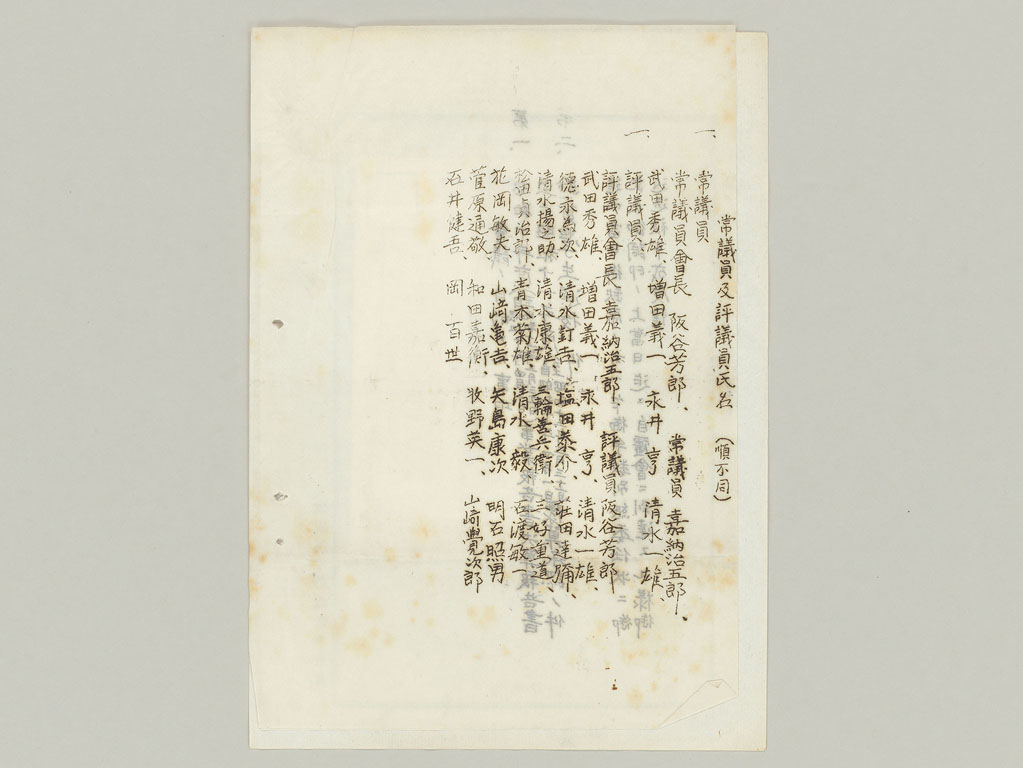 常議員及評議員氏名 (順不同)
一、常議員
常議員會長 阪谷芳郎、常議員 嘉納治五郎、
武田秀雄、増田義一 永井 亨 清水一雄、
一、評議員
評議員會長 嘉納治五郎、評議員 阪谷芳郎
武田秀雄、増田義一、永井 亨、清水一雄、
德永為次、清水釘吉、塩田泰介、莊田達彌、
清水揚之助 清水康雄 三輪善兵衛 三好重道、
貞治郎、青木菊雄、清水 毅 石渡敏一
花岡敏夫、山崎亀吉、矢島康次 明石照男
菅原通敬、和田嘉衡、牧野英一、山崎覺次郎
石井健吾、岡 百世